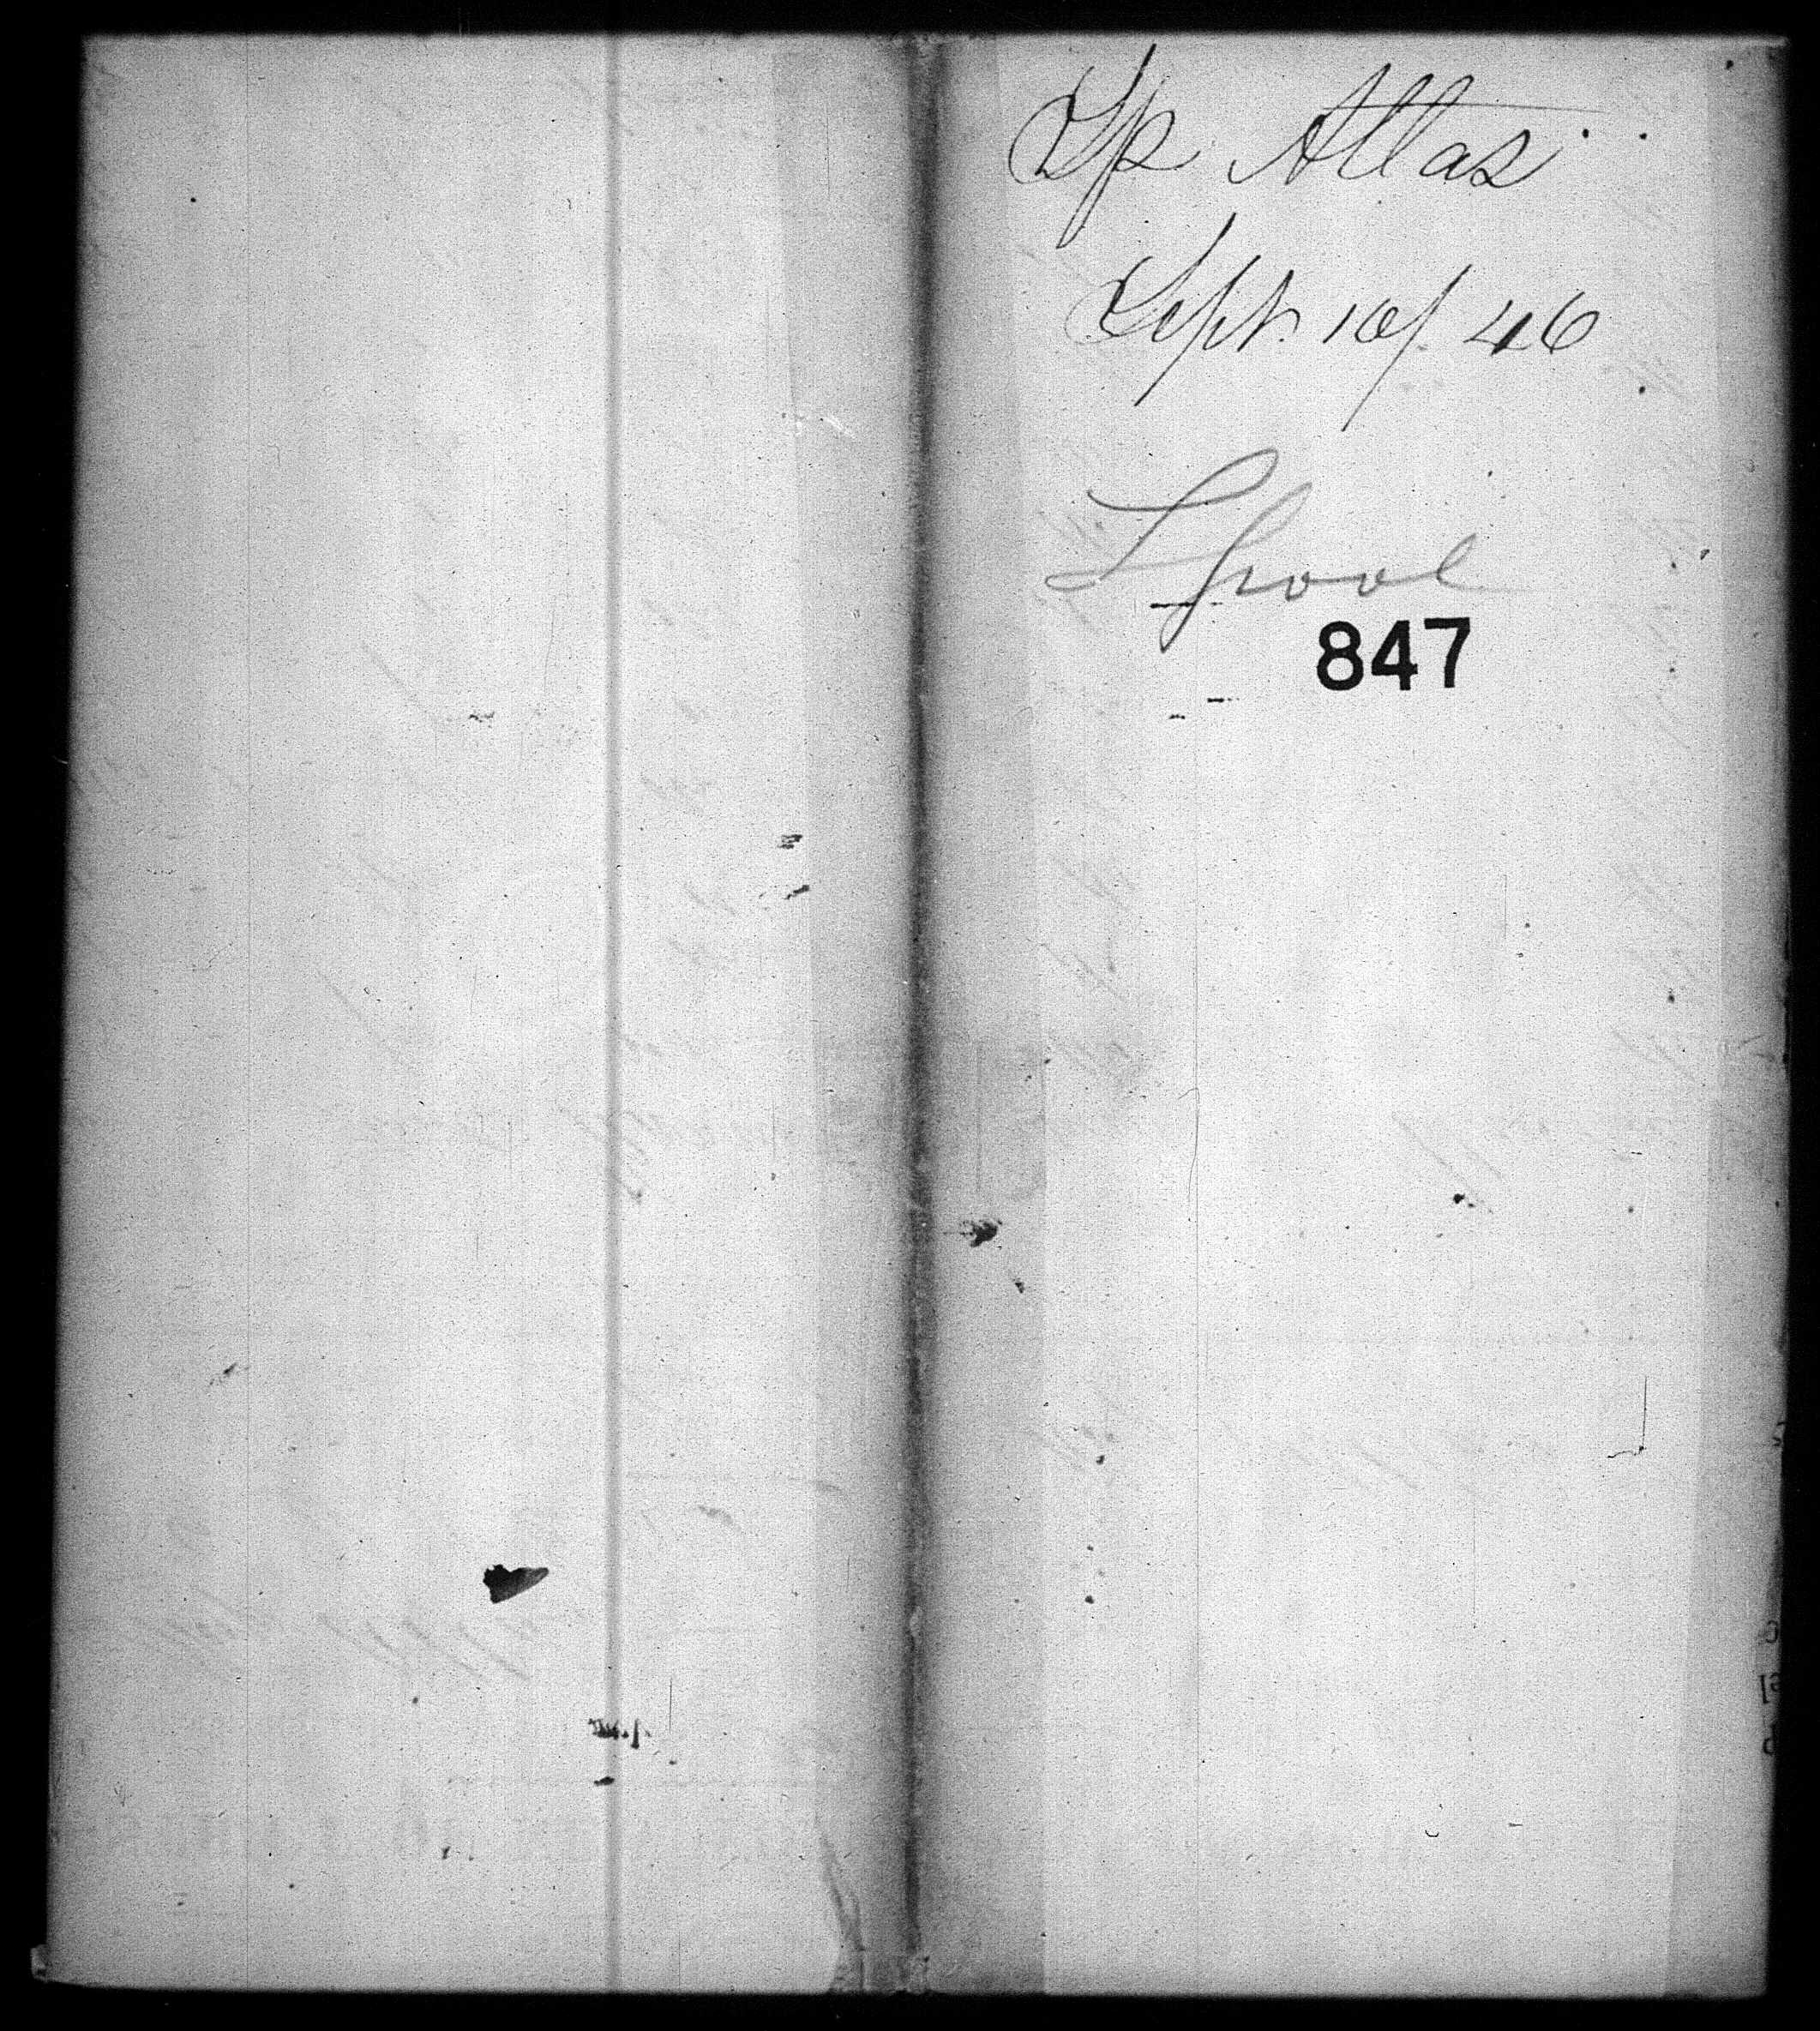 Sp Atlas
Sept. 10/ 46
Lpool
847